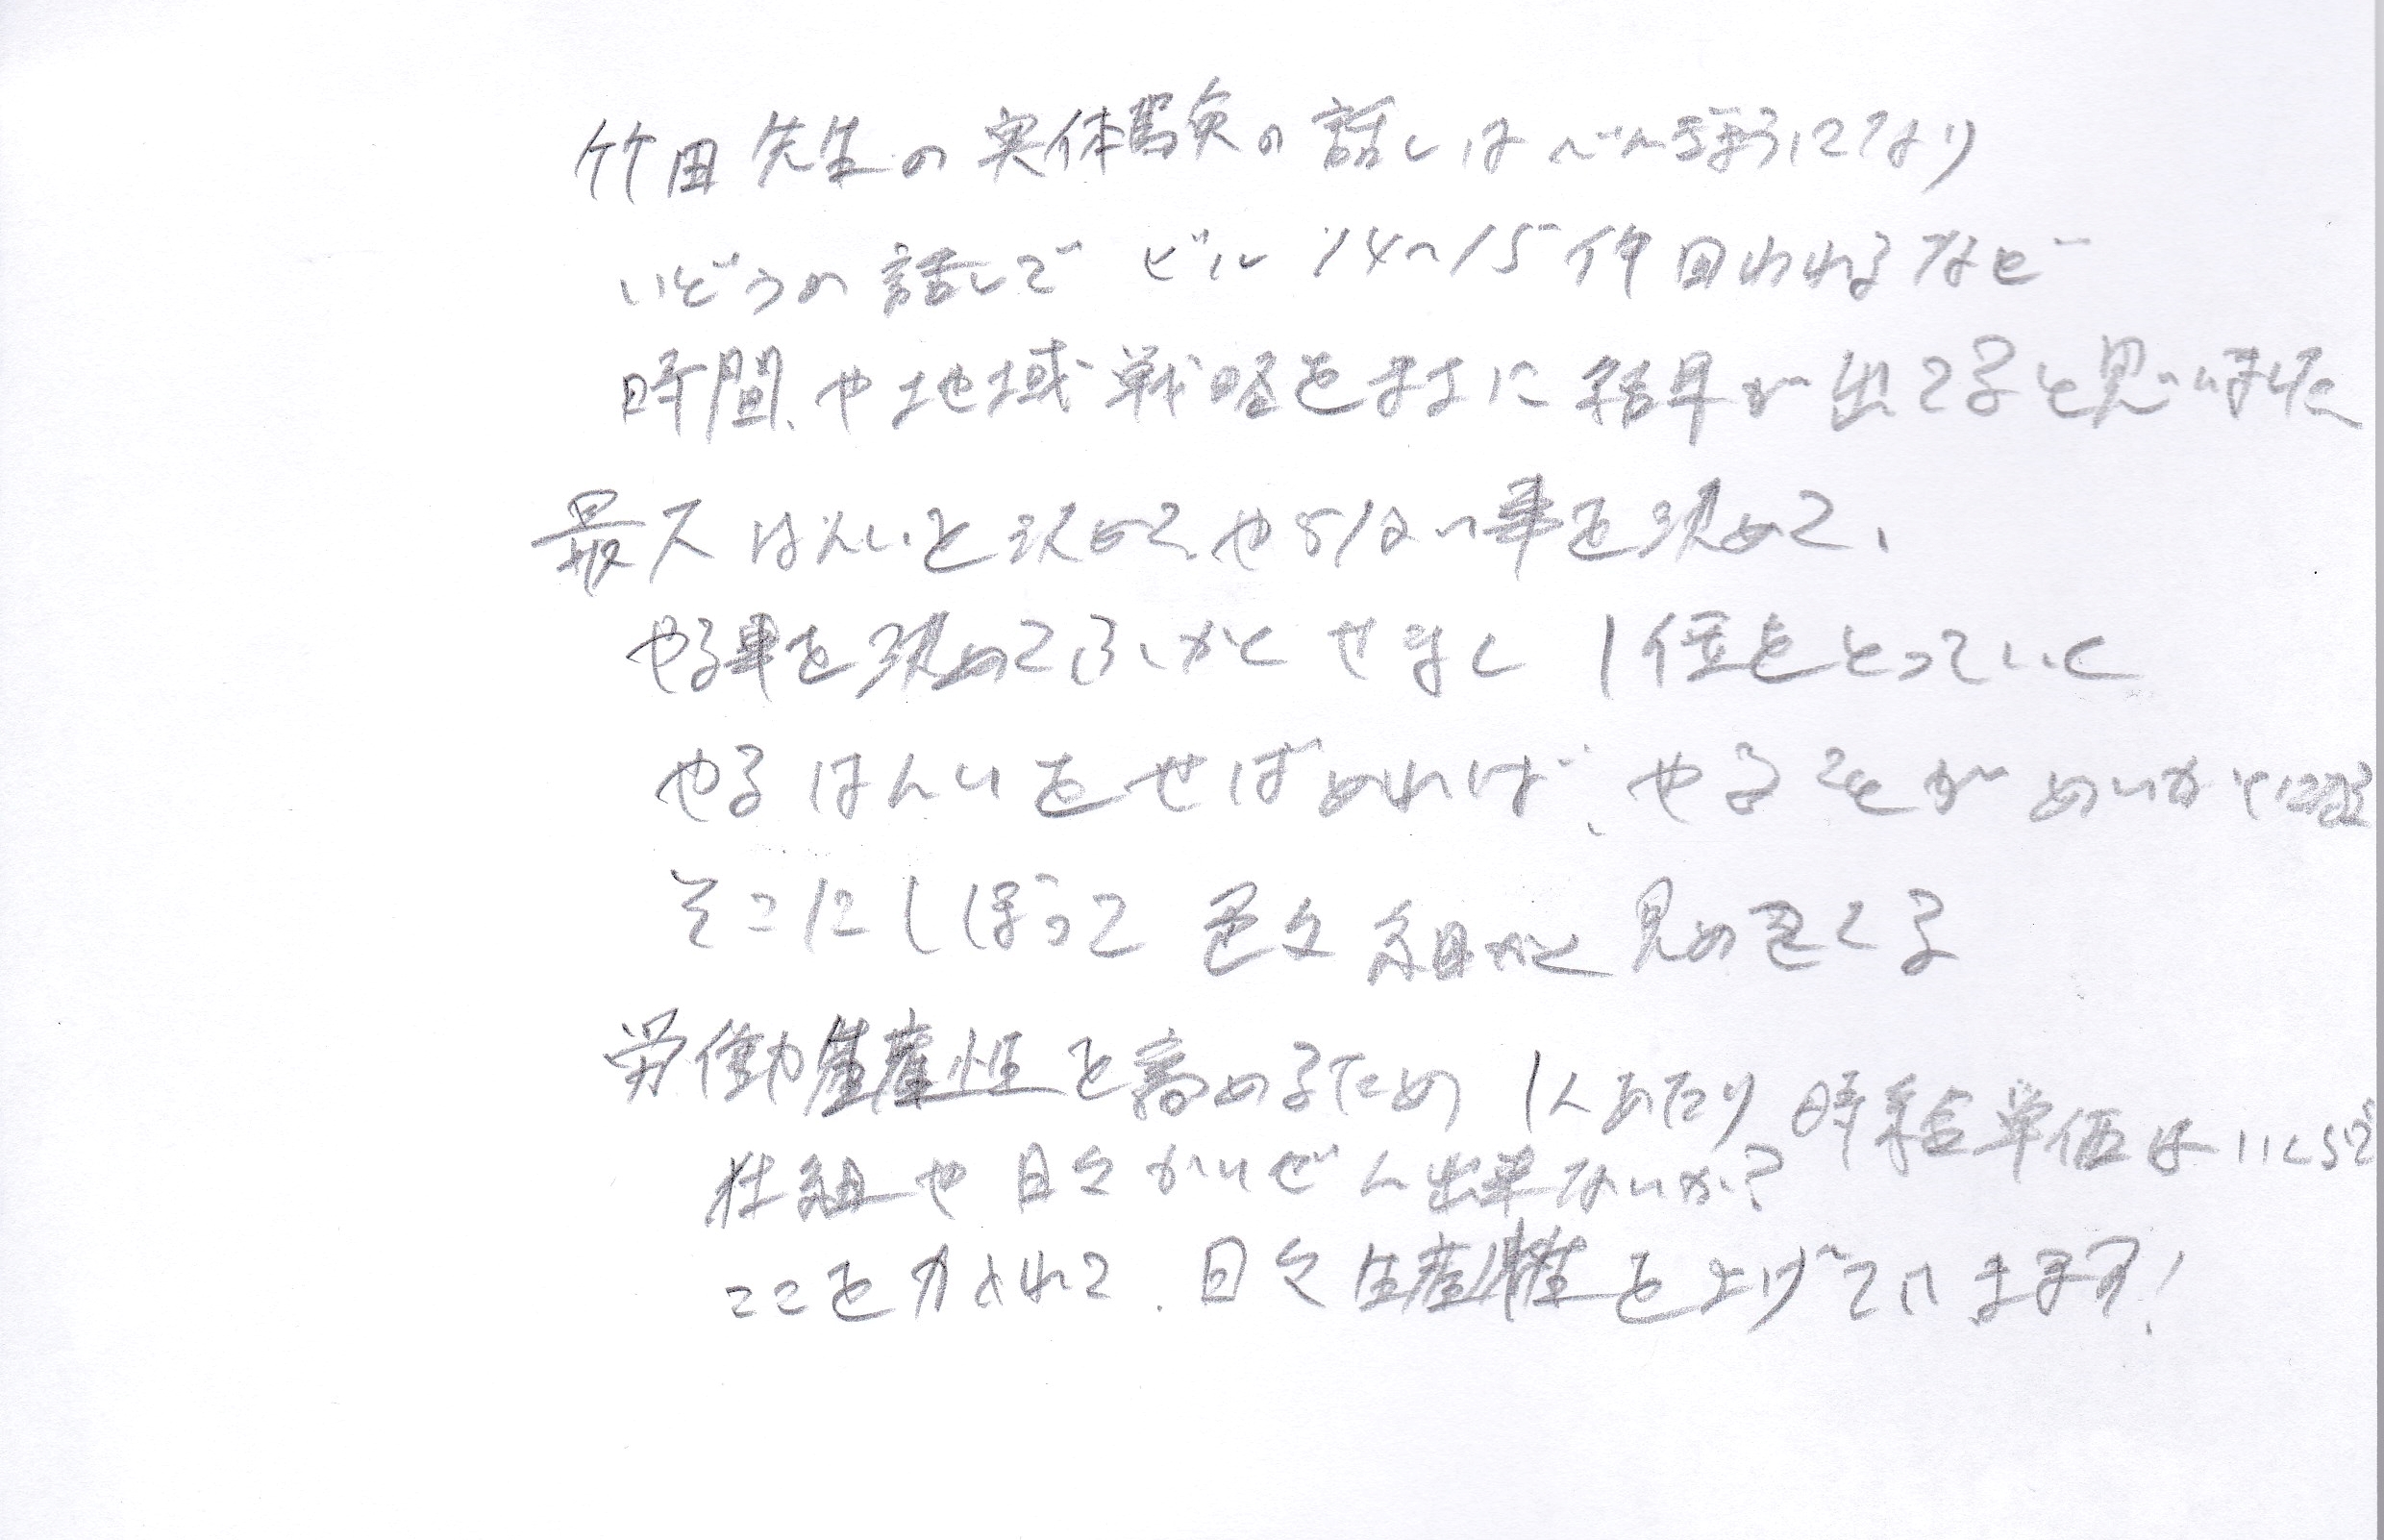 竹田先生の実体験の話しはべん強にてなり
いどうの話しで ビル 14〜15件回われるなど
時間、や地域戦略をまなに結果が出てると思いました
最大はんいを決めて、やらない事を決めて、
やる事を決めてふかくせまく 1位をとっていく
やるはんいをせばめれば、やることがめいかくに
そこにしぼって 色々細かく見めをくる
労働生産性を高めるため 1人あたり 時給単価はいくらで
仕組や日々かいぜん出来ないか?
ここを力入れて、日々生産性を上げています!